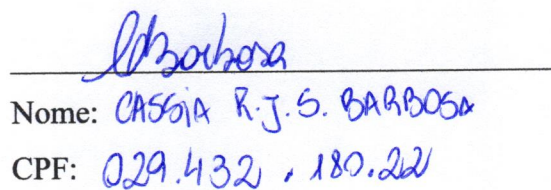 CBarbosa
Nome: CASSIA R.J.S. BARBOSA
CPF: 029.432.180.22